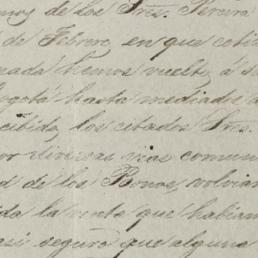 mos de los Sres. Pereira
de Febrero, en que cotiz
nada hemos vuelto á s
ogotá hasta mediados d
cibido los citados Sres.
por diversas vias comun
d de los Bonos, volvian
da la venta que habiam
asi seguro que alguna